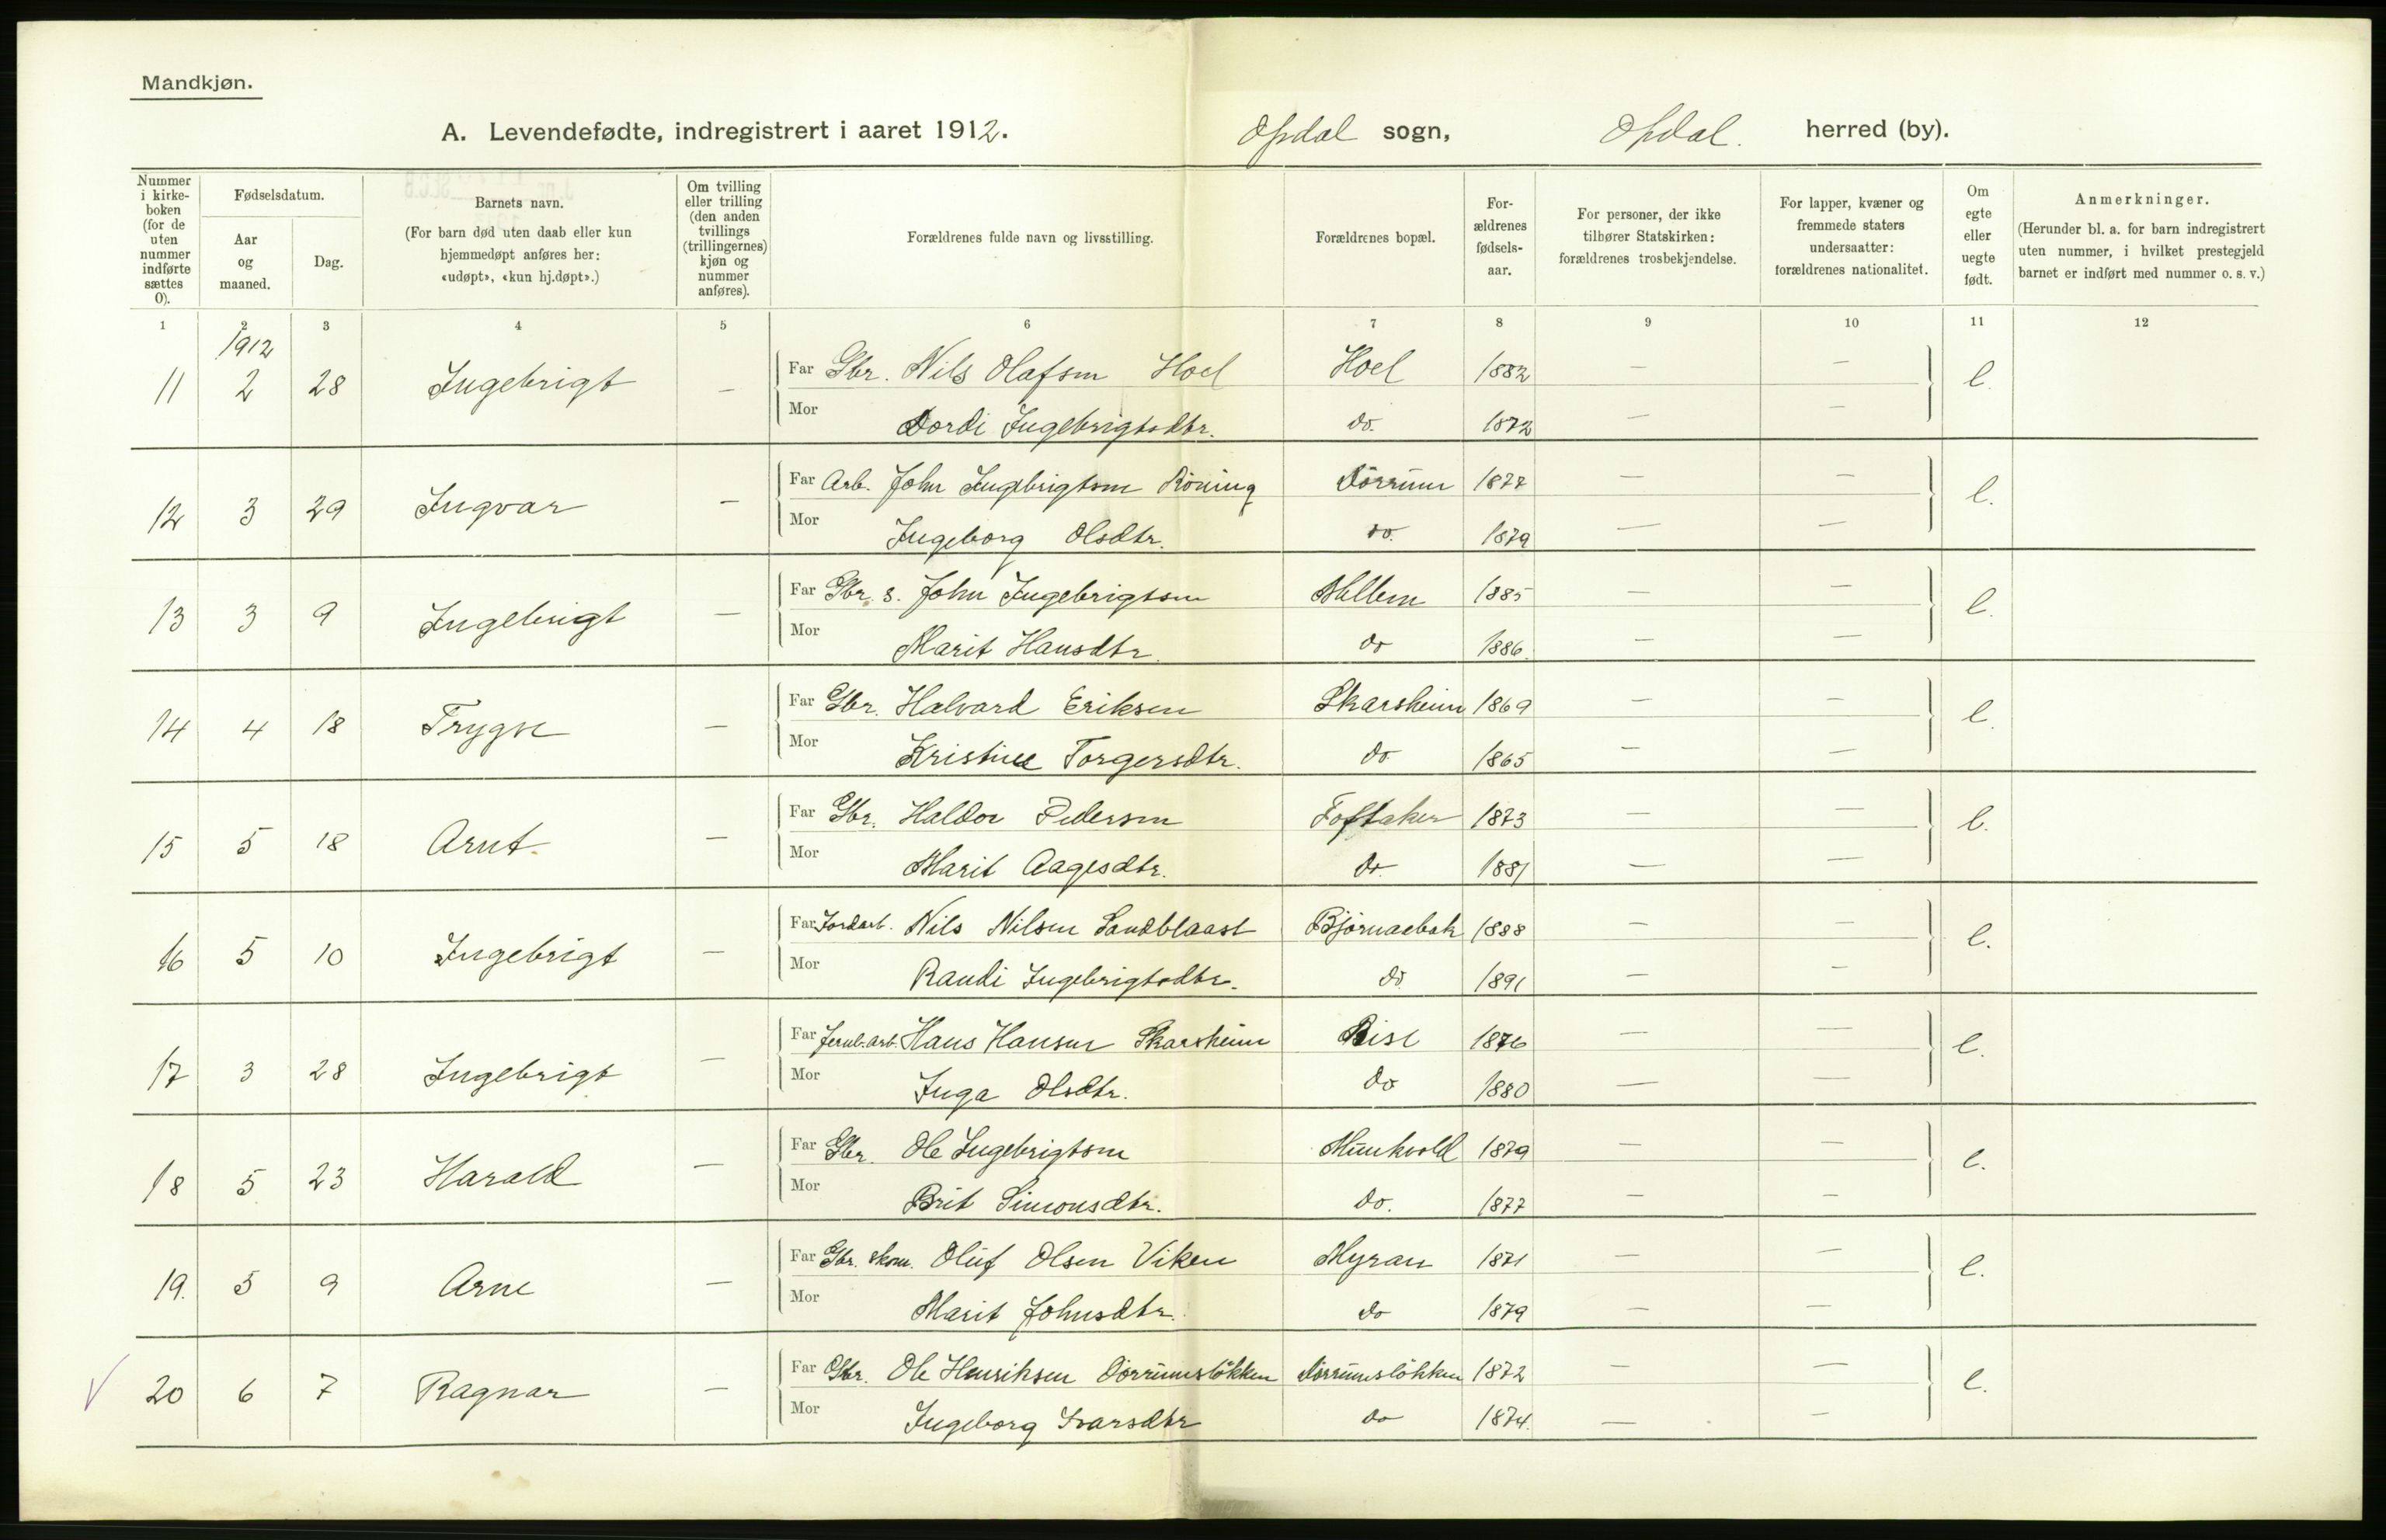 Mandkjøn.
A. Levendefødte, indregistrert i aaret 1912. Opdal sogn, Opdal. herred (by).
Nummer i kirkeboken (for de uten nummer indførte sættes 0).
Fødselsdatum.
Aar og maaned.
Dag.
Barnets navn.
(For barn død uten daab eller kun hjemmedøpt anføres her: «udøpt», «kun hj.døpt».)
Om tvilling eller trilling (den anden tvillings (trillingernes) kjøn og nummer anføres).
Forældrenes fulde navn og livsstilling.
Forældrenes bopæl.
Forældrenes fødselsaar.
For personer, der ikke tilhører Statskirken: forældrenes trosbekjendelse.
For lapper, kvæner og fremmede staters undersaatter: forældrenes nationalitet.
Om egte eller uegte født.
Anmerkninger.
(Herunder bl. a. for barn indregistrert uten nummer, i hvilket prestegjeld barnet er indført med nummer o. s. v.)
1 2 3 4 5 6 7 8 9 10 11 12
1912
11 2 28 Ingebrigt — Far Gbr. Nils Olafsen Hoel Hoel 1882 — — e.
Mor Dordi Ingebrigtsdtr. do. 1872 — —
12 3 29 Ingvar — Far Arb. John Ingebrigtsen Röning Dörrum 1877 — — e.
Mor Ingeborg Olsdtr. do. 1879 — —
13 3 9 Ingebrigt — Far Gbr. s. John Ingebrigtsen 1885 — — e.
Mor Marit Hansdtr. do 1886. — —
14 4 18 Trygve — Far Gbr. Halvard Eriksen Skarsheim 1869 — — e.
Mor Kristine Torgersdtr. do 1865 — —
15 5 18 Arnt. — Far Gbr. Haldor Pedersen 1873 — — e.
Mor Marit Aagesdtr. do. 1881 — —
16 5 10 Ingebrigt — Far Jordarb. Nils Nilsen Sandblaast 1888 — — e.
Mor Randi Ingebrigtsdtr. do 1891 — —
17 3 28 Ingebrigt — Far Jernb.arb. Hans Hansen Skarsheim Rise 1876 — — e.
Mor Inga Olsdtr. do 1880 — —
18 5 23 Harald — Far Gbr. Ole Ingebrigtsen Munkvold 1879 — — e.
Mor Brit Simonsdtr. do. 1877 — —
19. 5 9 Arne — Far Gbr. skom. Oluf Olsen Viken Myran 1871 — — e.
Mor Marit Johnsdtr. do 1879 — —
20 6 7 Ragnar — Far Gbr. Ole Henriksen Dörrumslökken Dörrumslökken 1872 — — e.
Mor Ingeborg Ivarsdtr do 1874. — —